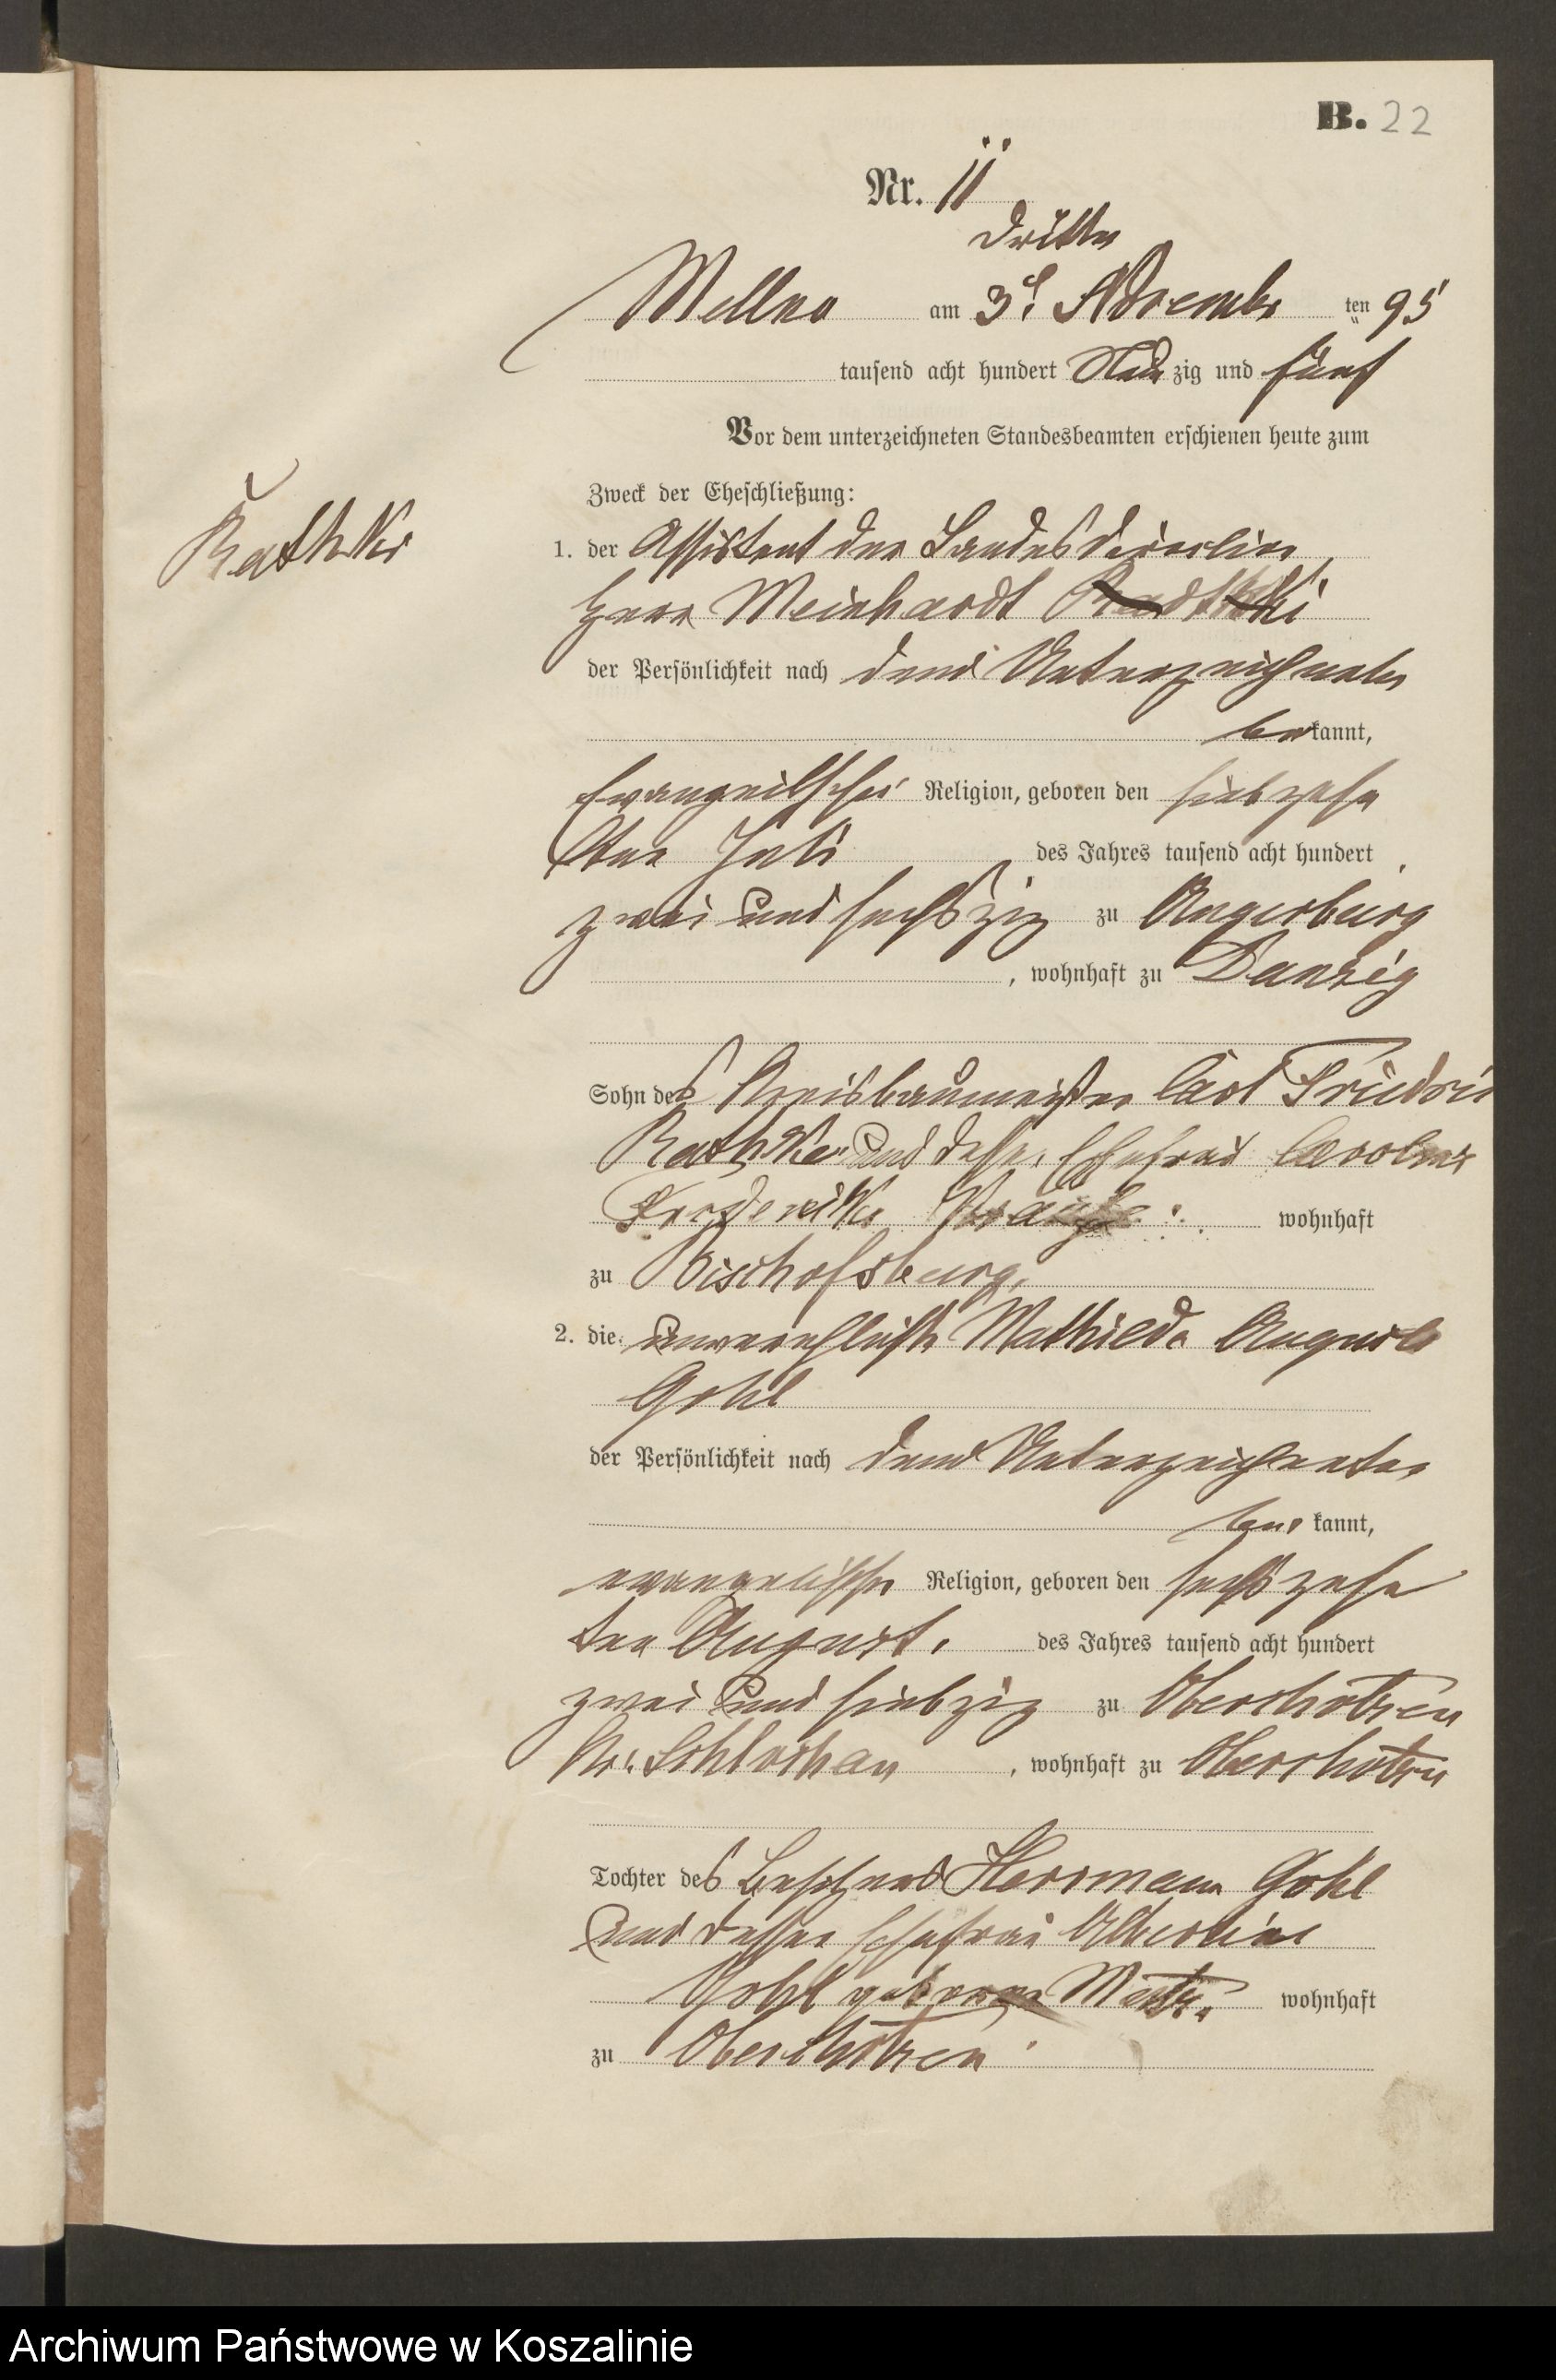 B. 22
Nr. 11
dritte
Wellna am 3t. November ten 95
tausend acht hundert Neun zig und fünf
Vor dem unterzeichneten Standesbeamten erschienen heute zum
Zweck der Eheschließung:
Rathke
1. der Assistent der Landesdirection,
Herr Meinhardt
der Persönlichkeit nach dem Unterzeichneten
bekannt,
Evangelischer Religion, geboren den siebzehn
ten Juli des Jahres tausend acht hundert
zwei und sechszig zu Angerburg
, wohnhaft zu Danzig
Sohn des Kreisbaumeister Carl Friedrich
Rathke und dessen Ehefrau Caroline
Friederike Krause wohnhaft
zu Bischofsburg,
2. die unverehelichte Mathilde Auguste
Gohl
der Persönlichkeit nach dem Unterzeichneten
kannt,
evangelischer Religion, geboren den sechszehn
ten August. des Jahres tausend acht hundert
zwei und siebzig zu Oberchotzen
Kr. Schlochau , wohnhaft zu Oberchotzen
Tochter des Besitzers Herrmann Gohl
und dessen Ehefrau Albertine
Gohl geborene wohnhaft
zu Oberchotzen
Archiwum Państwowe w Koszalinie